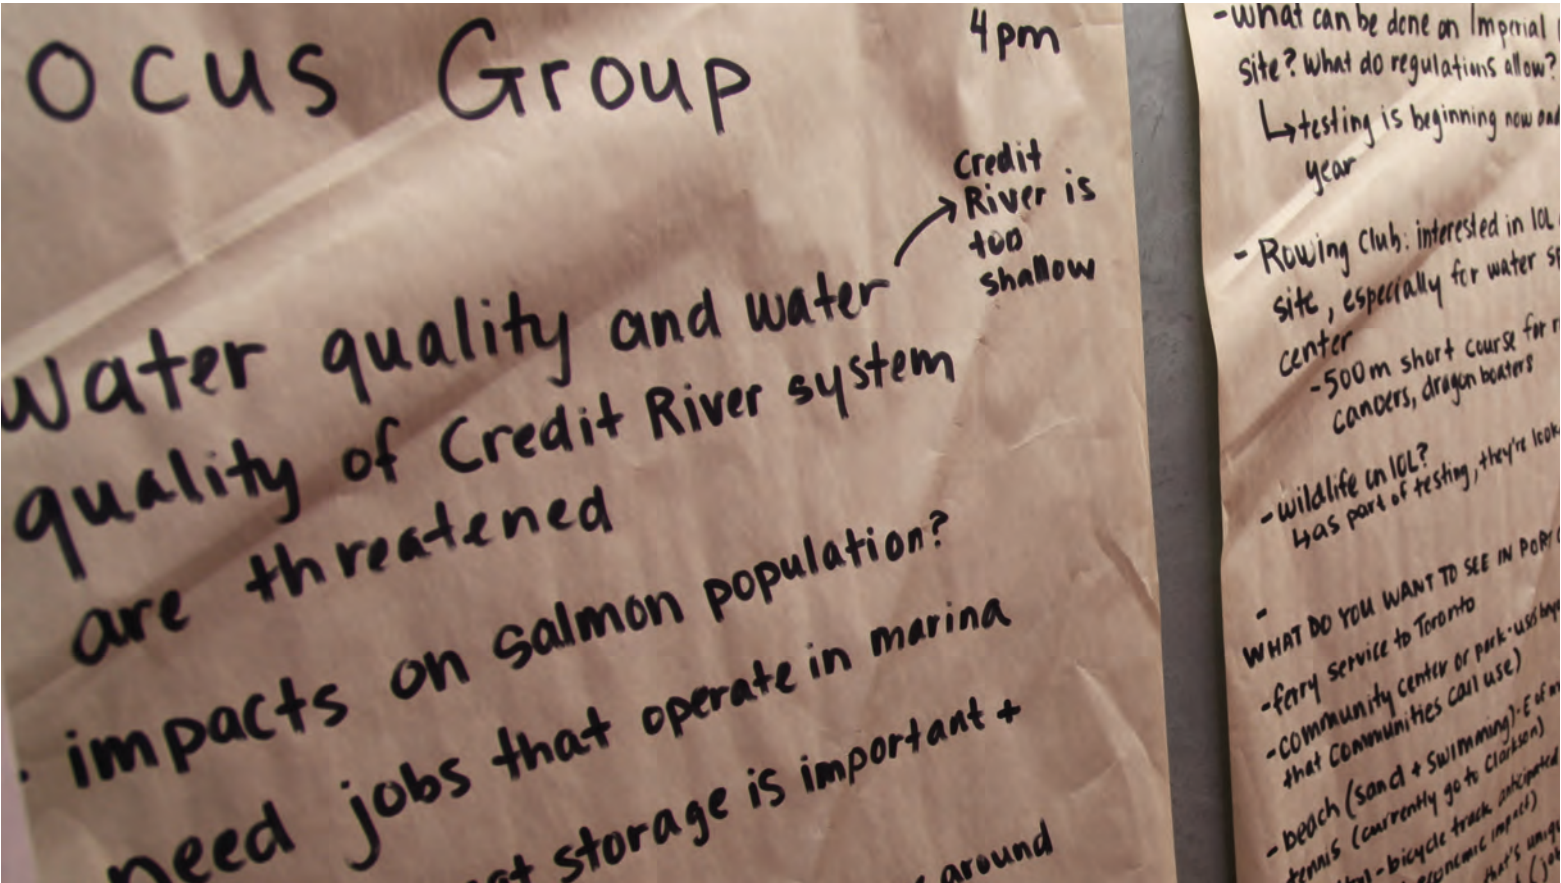 ocus Group
4pm
Credit
River is
too
shallow
Water quality and water
quality of Credit River system
are threatened
· impacts on salmon population?
need jobs that operate in marina
storage is important +
around
-what can be done on Imperial
site? What do regulations allow?
↳testing is beginning now and
year
- Rowing Club: interested in IOL
site, especially for water sp
center
-500m short course for r
canoers, dragon boaters
-wildlife on IOL?
↳as part of testing, they're look
-
WHAT DO YOU WANT TO SEE IN PORT C
-ferry service to Toronto
-community center or park
that communities can use)
-beach (sand + swimming)
tennis (currently go to Clarkson)
-bicycle track anticipated
economic impact)
that's uniq